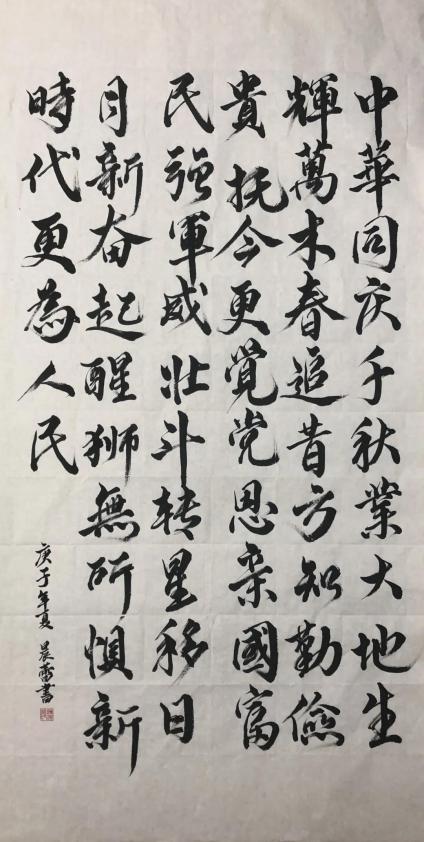 中華同庆千秋業大地生
輝萬木春追昔方知勤儉
貴抚今更覺党恩亲國富
民强軍威壮斗转星移日
月新奋起醒狮無所惧新
時代更為人民
庚子年夏 晨書